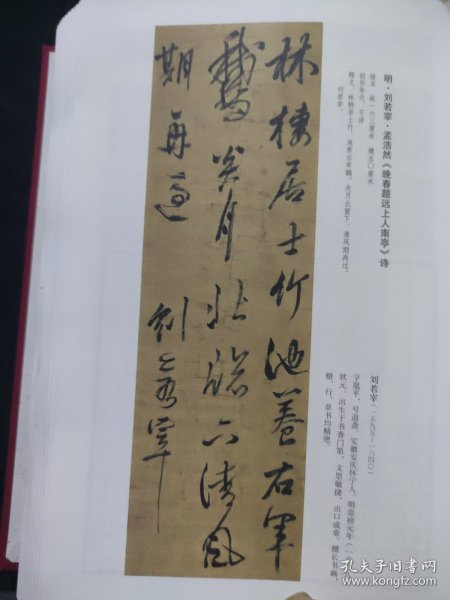 明·刘若宰·孟浩然《晚春题远上人南亭》诗
绫本 纵一六三厘米 横五〇厘米
创作年代 不详
释文：林栖居士竹，池养右军鹅。炎月北窗下，清风期再过。
刘若宰。
刘若宰（一五九五-一六四〇）
字胤平，号退斋，安徽安庆怀宁人，明崇祯元年（一
状元。出生于书香门第，文思敏捷，出口成章，擅长书画，
楷、行、草书均精绝。
林棲居士竹池養右軍
鵞炎月北牕下清風
期再過
劉若宰
孔夫子旧书网